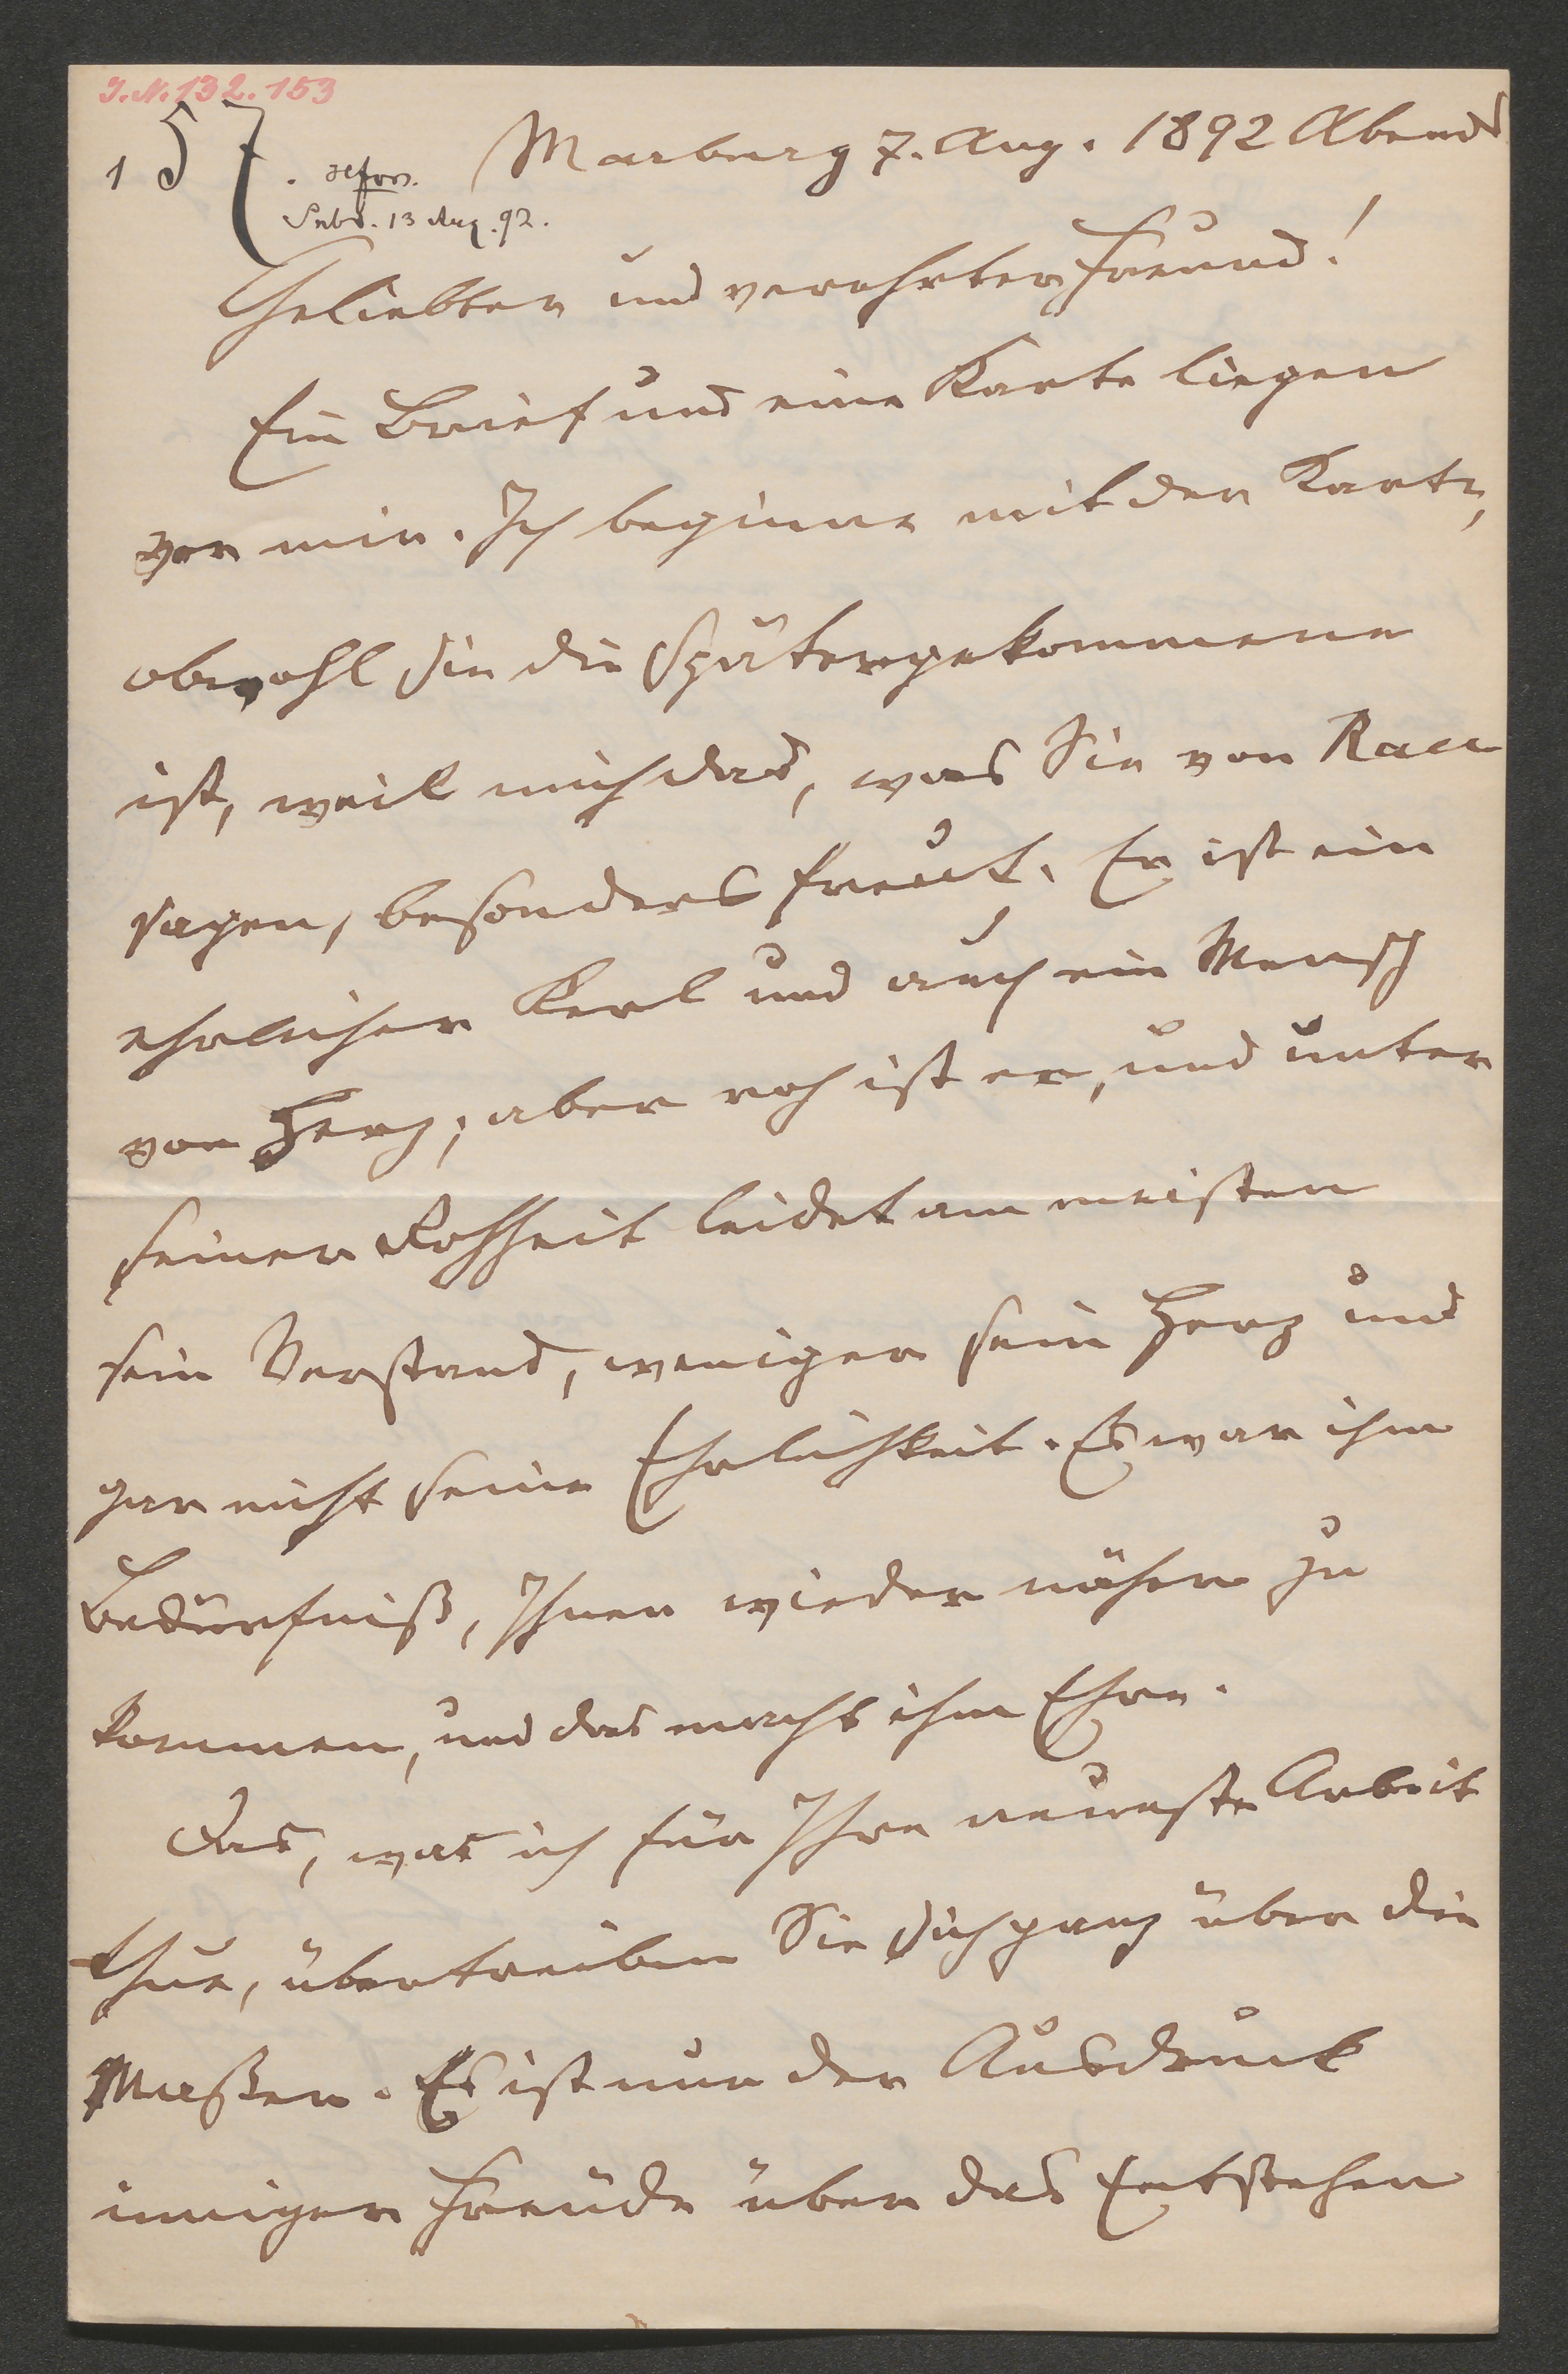 J.N. 132.153
157
Snbd. 13 Aug. 92.
Marburg 7. Aug. 1892 Abends
Geliebter und verehrter Freund!
Ein Brief und eine Karte liegen
vor mir. Ich beginne mit der Karte,
obwohl sie die Spätergekommene
ist, weil mich das, was Sie von Rau
sagen, besonders freut. Er ist ein
ehrlicher Kerl und auch ein Mensch
von Herz; aber roh ist er, und unter
seiner Rohheit leidet am meisten
sein Verstand, weniger sein Herz und
gar nicht seine Ehrlichkeit. Es war ihm
Bedürfniß, Ihnen wieder näher zu
kommen, und das macht ihm Ehre.
Das, was ich für Ihre neueste Arbeit
thue, übertreiben Sie sich ganz über die
Maßen. Es ist nur der Ausdruck
inniger Freude über das Entstehen